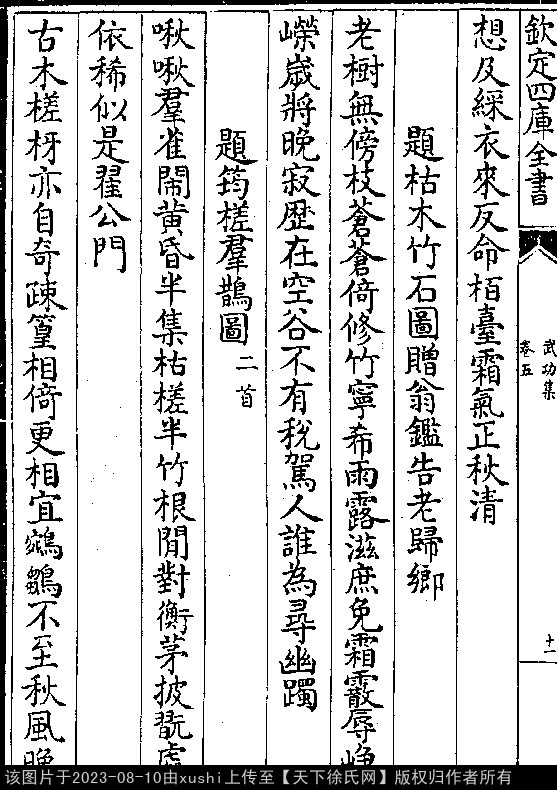 欽定四庫全書
武功集
卷五
十一
想及綵衣來反命栢臺霜氣正秋清
題枯木竹石圖贈翁鑑告老歸鄉
老樹無傍枝蒼蒼倚修竹寧希雨露滋庶免霜霰辱崢
嶸歲將晚寂歴在空谷不有稅駕人誰為尋幽躅
題筠槎羣鵲圖二首
啾啾羣雀閙黄昏半集枯槎半竹根閒對衡茅披翫處
依稀似是翟公門
古木槎枒亦自奇疎篁相倚更相宜鵷鶵不至秋風晚
该图片于2023-08-10由xushi上传至【天下徐氏网】版权归作者所有